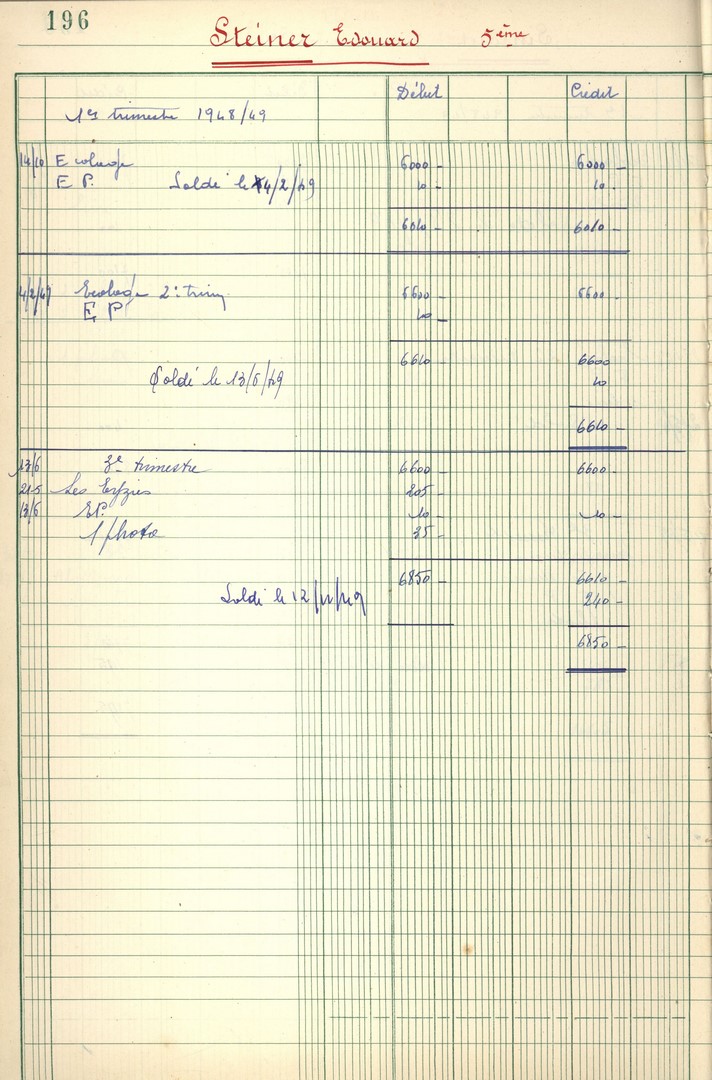 196
Steiner Edouard 5ème
Début Crédit
1er trimestre 1948/49
14/10 Ecolage 6000 - 6000 -
E P. Soldé le 4/2/49 10 - 10 -
6010 - 6010 -
4/2/49 Ecolage 2e trim 6600 - 6600 -
E P 10 -
6610 - 6600
Soldé le 13/6/49 10
6610 -
13/6 3e trimestre 6600 - 6600 -
21-5 Les Eyzies 205 -
13/6 EP. 10 - 10 -
1 photo 35 -
6850 - 6610 -
Soldé le 12/11/49 240 -
6850 -